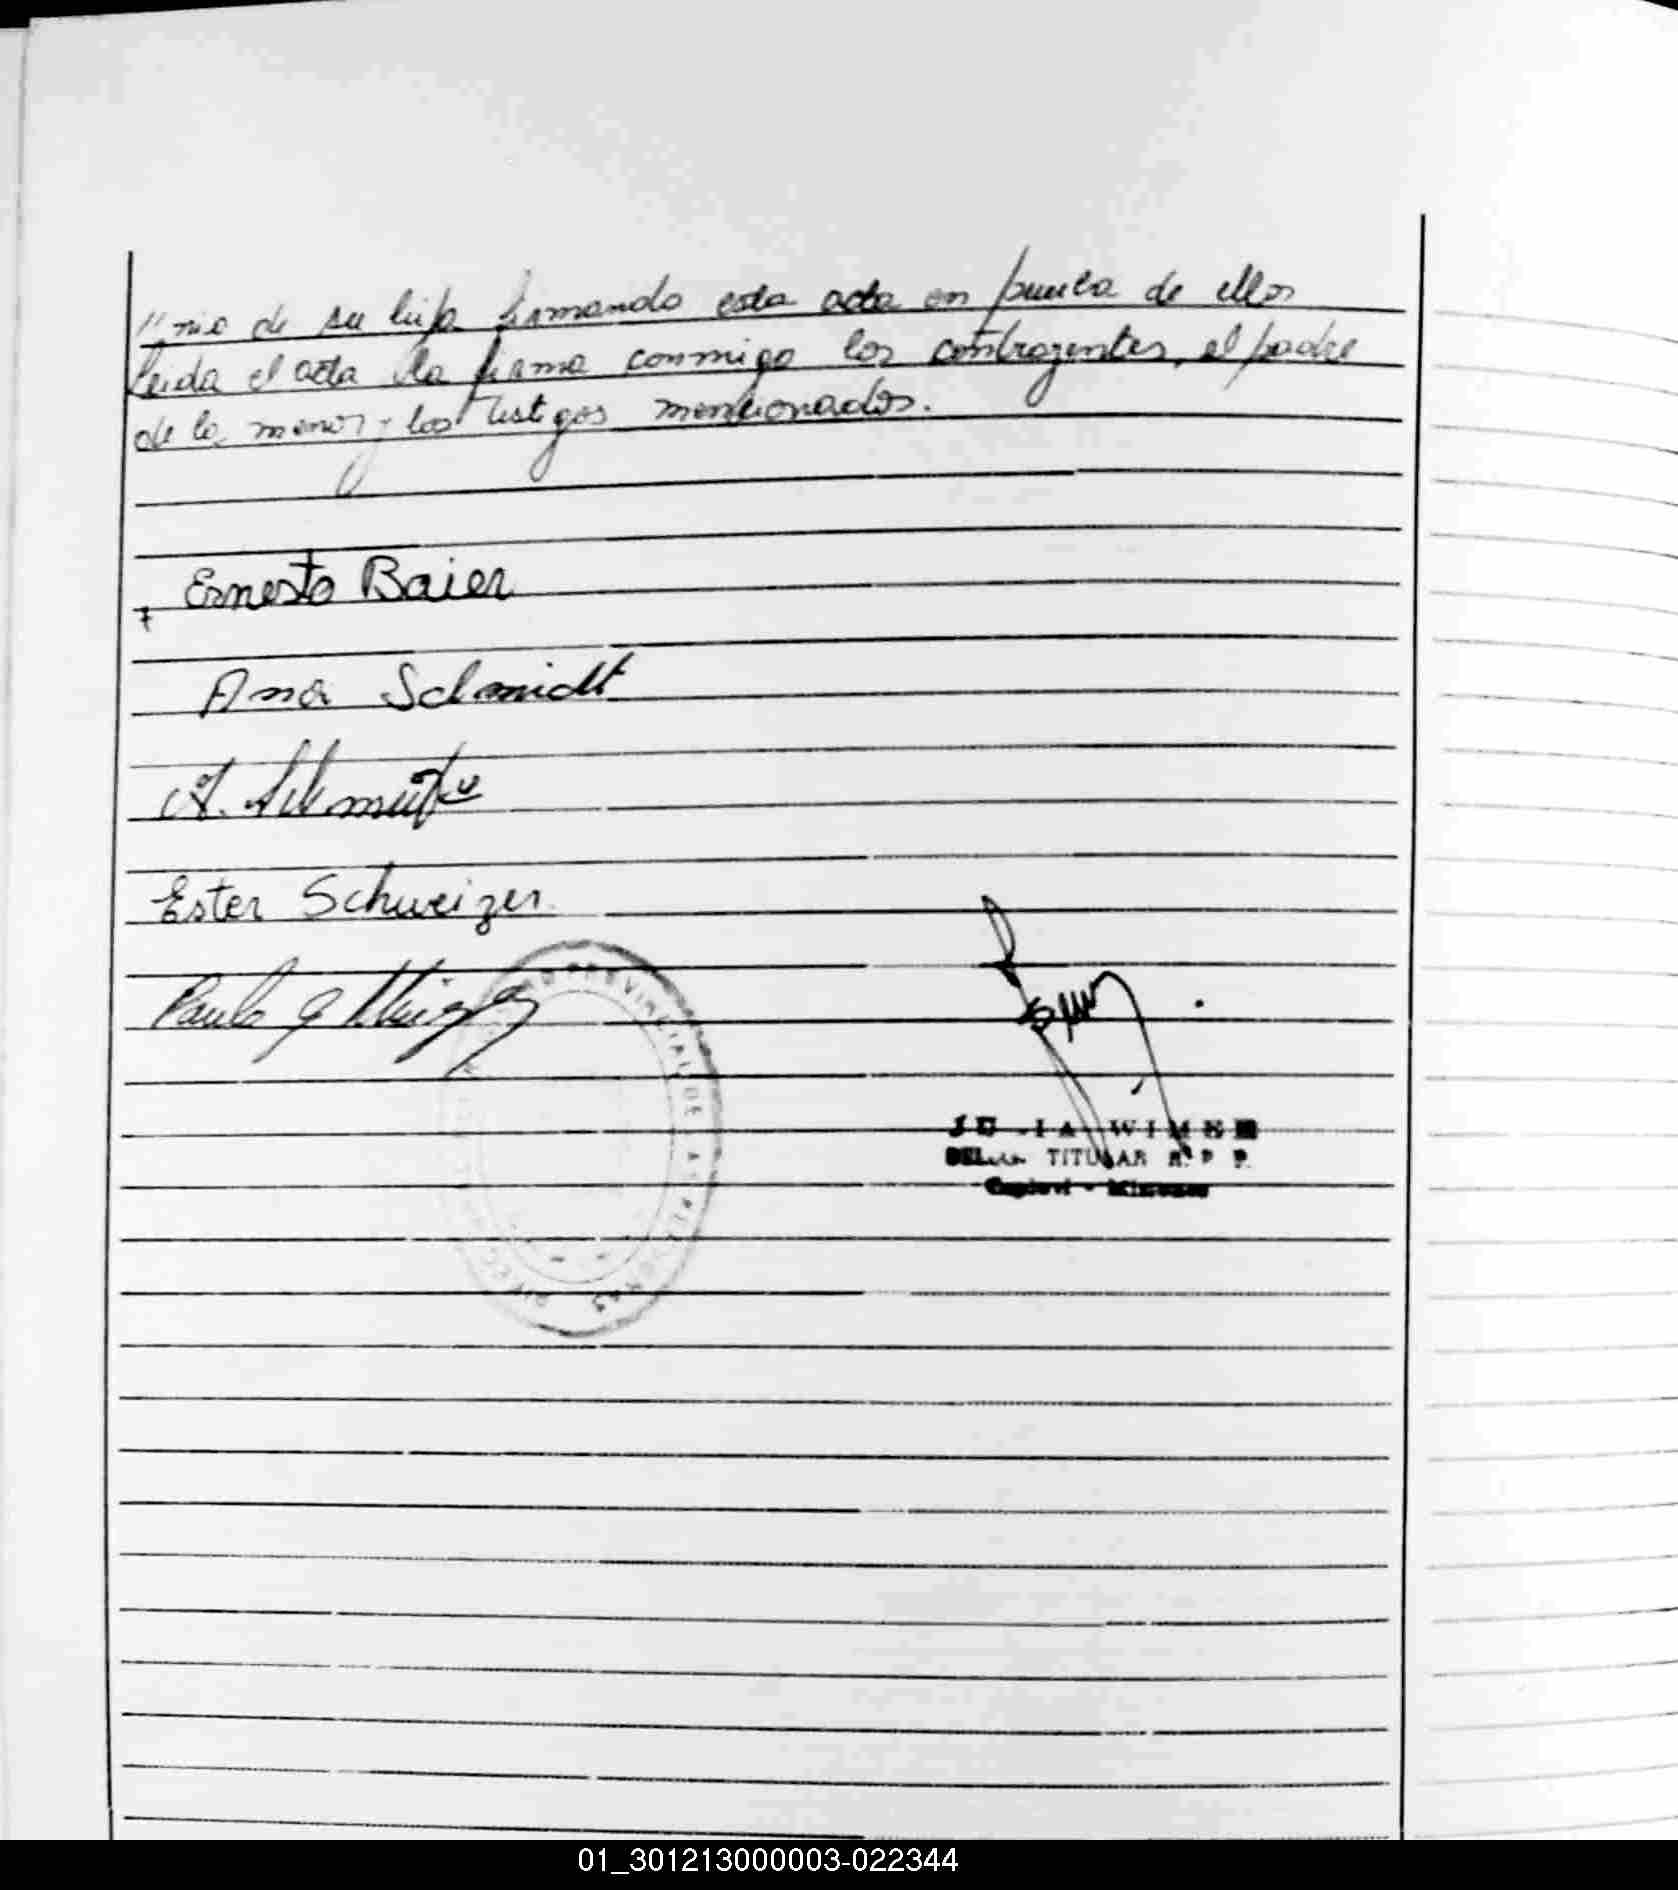 //nio de su hija firmando esta acta en prueba de ellos
Leida el acta la firma conmigo los contrayentes, el padre
de la menor y los testigos mencionados.
Ernesto Baier
Ana Schmidt
A. Schmidt
Ester Schweizer
Paulo
PROVINCIAL DE LAS PERSONAS
JU IA WIMER
TITULAR R. P. P.
Capiovi - Misiones
01_301213000003-022344